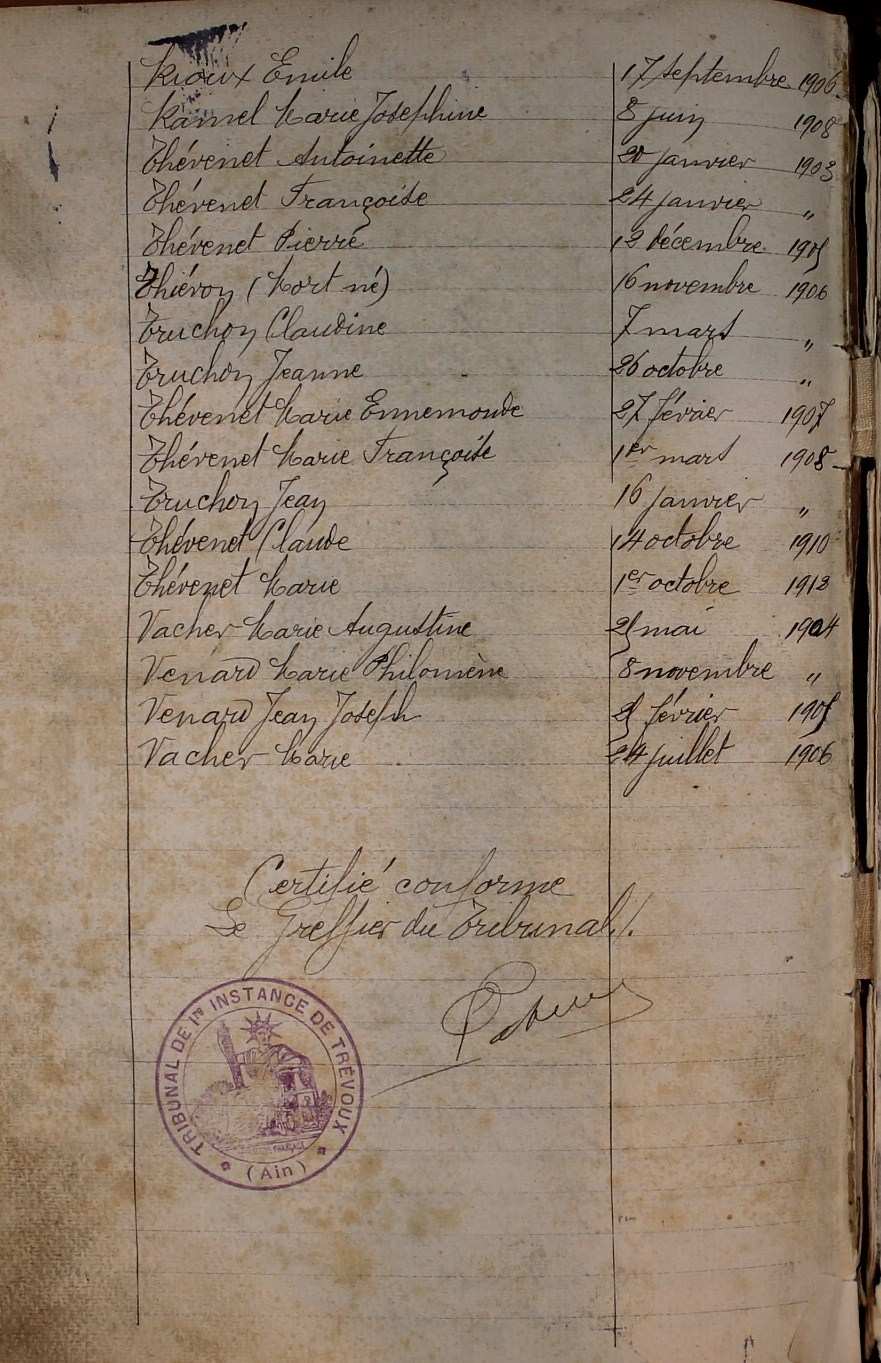 Rioux Emile 17 septembre 1906
Ramel Marie Joséphine 8 juin 1908
Thévenet Antoinette 20 janvier 1903
Thévenet Françoise 24 janvier "
Thévenet Pierre 12 décembre 1905
Thiévon (Mort né) 16 novembre 1906
Truchon Claudine 7 mars "
Truchon Jeanne 26 octobre "
Thévenet Marie Ennemonde 27 février 1907
Thévenet Marie Françoise 1er mars 1908
Truchon Jean 16 janvier "
Thévenet Claude 14 octobre 1910
Thévenet Marie 1er octobre 1912
Vacher Marie Augustine 25 mai 1904
Venard Marie Philomène 8 novembre "
Venard Jean Joseph 25 février 1905
Vacher Marie 24 juillet 1906
Certifié conforme
Le Greffier du Tribunal ./.
TRIBUNAL DE 1re INSTANCE DE TRÉVOUX
(Ain)